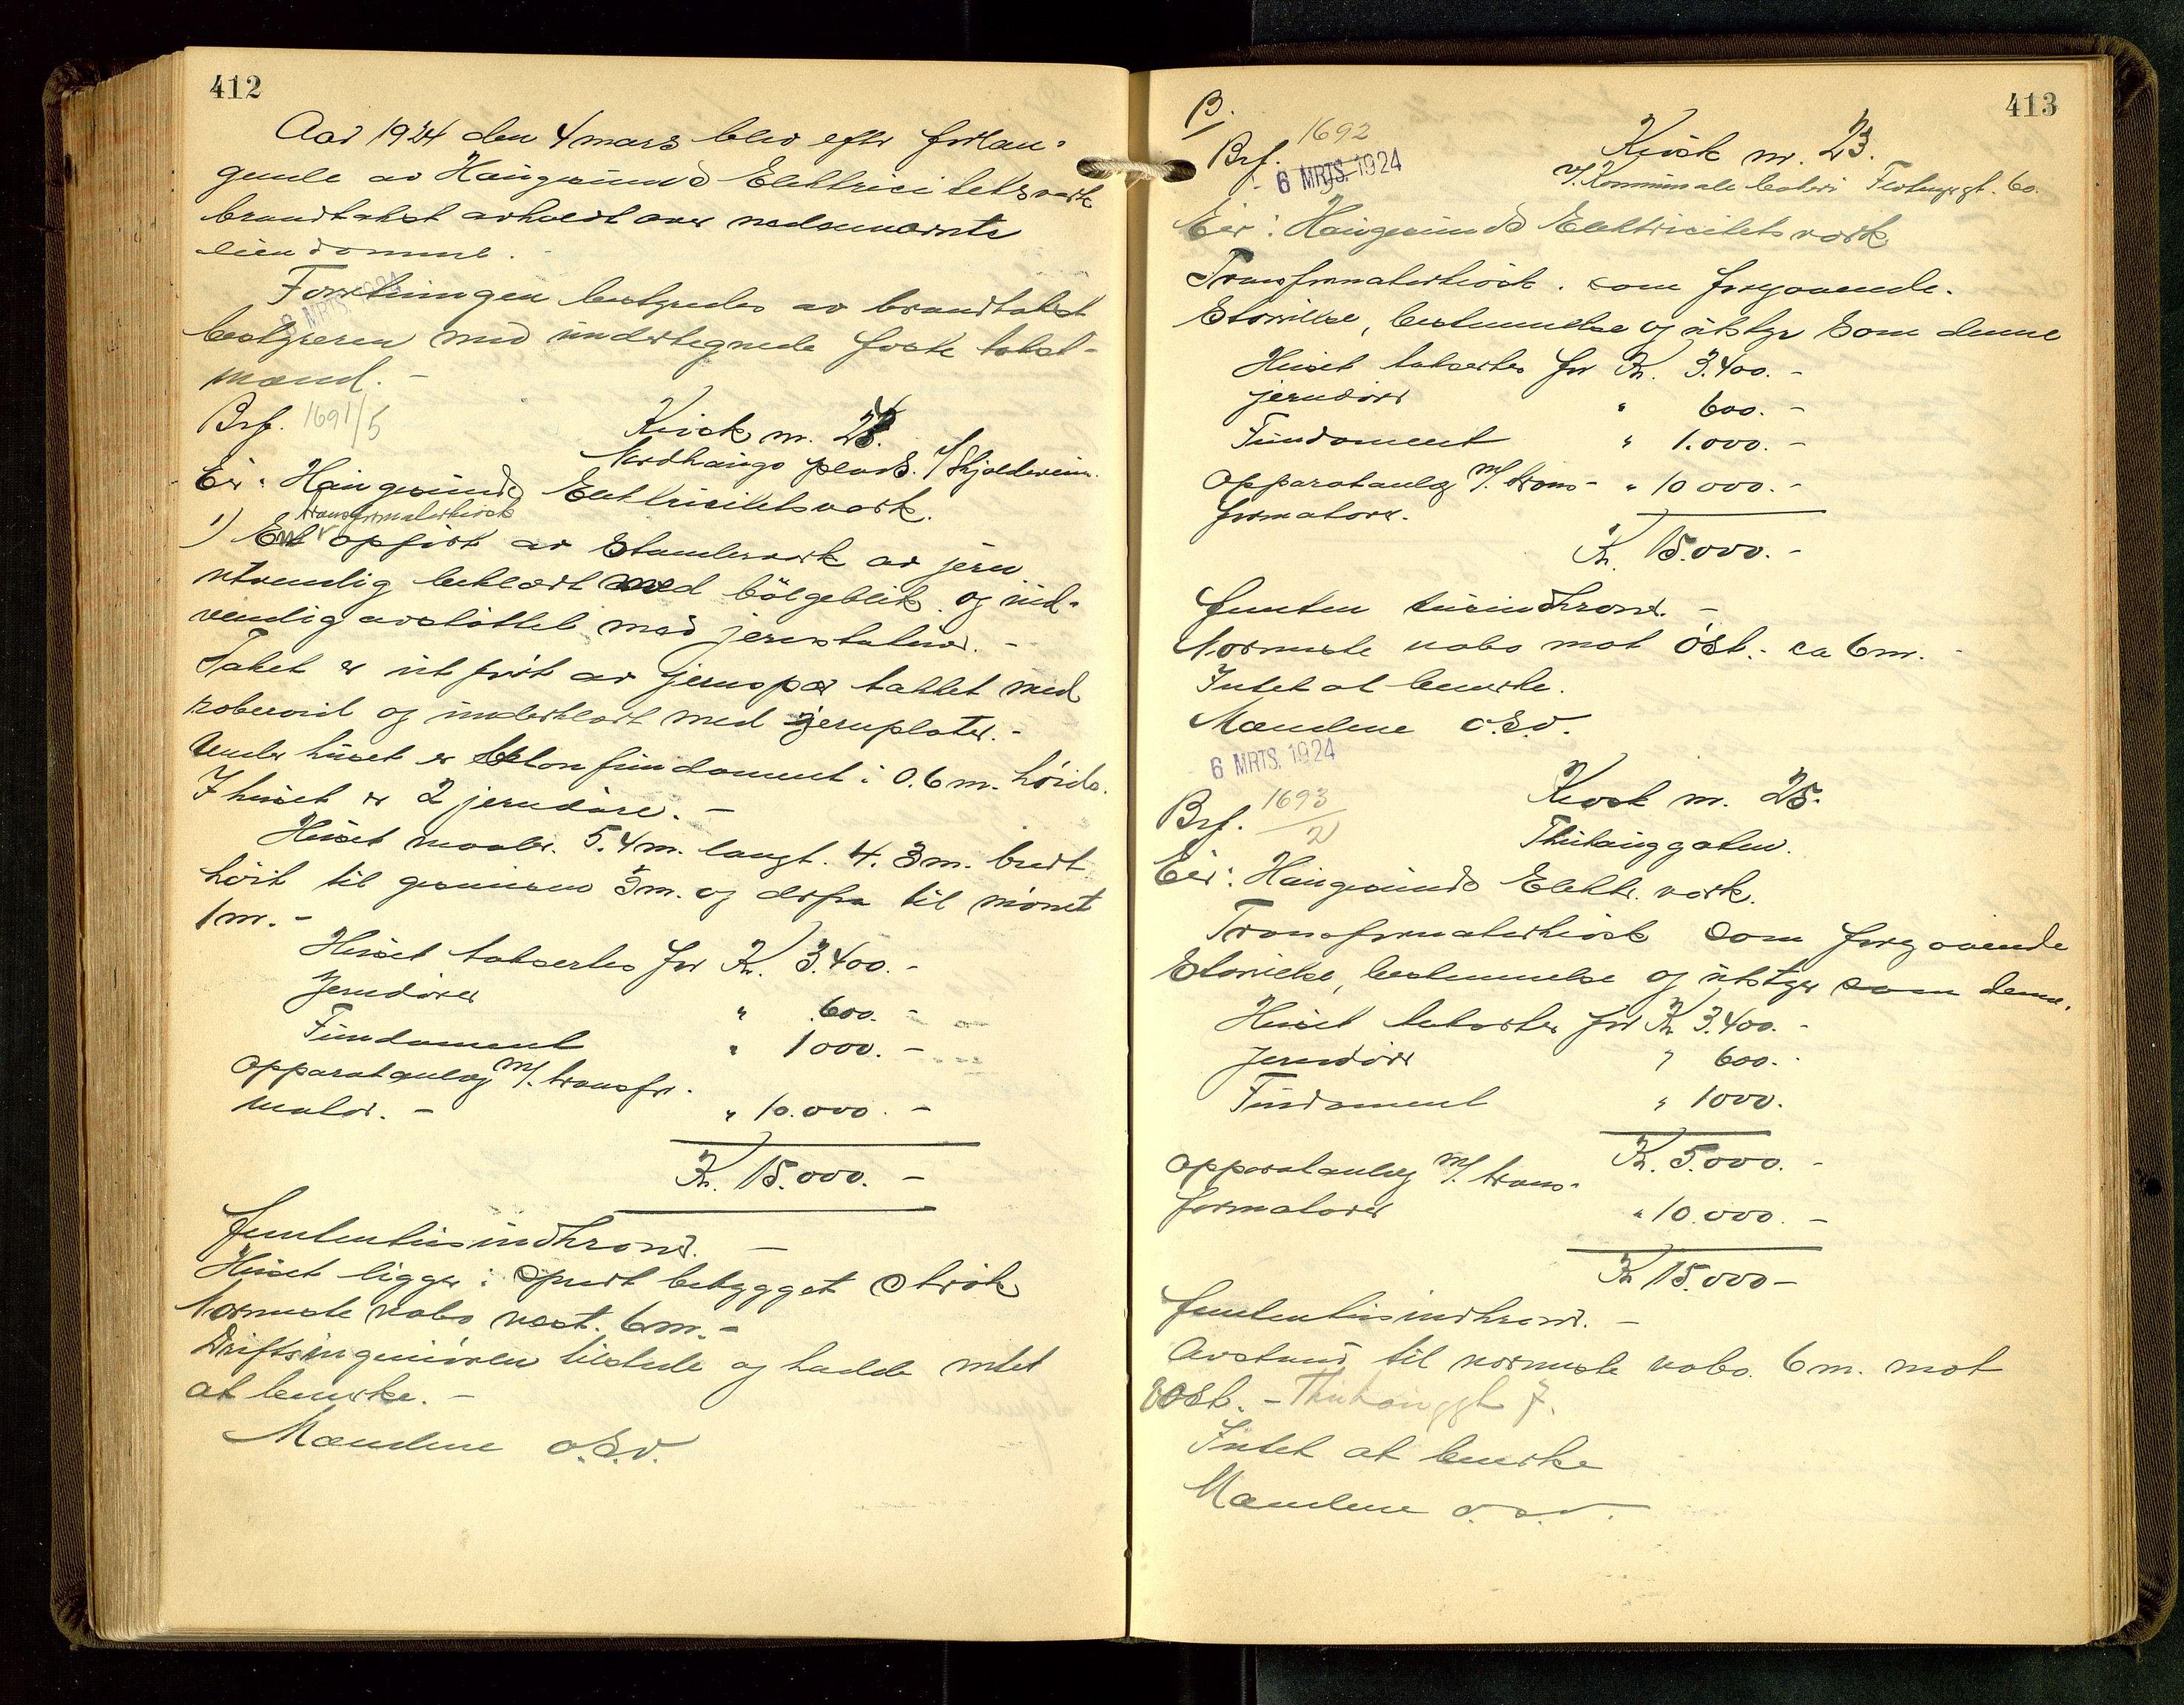 412
Aar 1924 den 4 mars blev efter forlan-
gende av Haugesunds Elektricitetsverk
brandtakst avholdt over nedennævnte
eiendomme.
Forretningen bestyredes av brandtakst
6 MRTS. 1924
bestyreren med undertegnede faste takst-
mænd. -
Brf. 1691/5
Kiosk nr. 24.
Nordhaugs plads. v/Skjoldevein.
Eier: Haugesunds Elektricitetsverk.
transformatorkiosk
1) En opført av Stenderverk av jern
utvendig beklædt med bölgeblik og ind-
vendig avstöttet med jernstativer. -
Taket er utført av jernsper tækket med
roberoid og underklædt med jernplater. -
Under huset er betonfundament i 0.6 m. höide.
I huset er 2 jerndöre. -
Huset maaler. 5.4 m. langt. 4.3 m. bredt
höit til gesimsen 3 m. og derfra til mönet
1 m. -
Huset takseres for Kr. 3.400. -
Jerndörer " 600. -
Fundament " 1000. -
Apparatanlæg m/. transfor-
mator. - " 10.000. -
Kr. 15.000. -
Jemtentusindkroner. -
Huset ligger i spredt bebygget strök
Nærmeste nabo vest. 6 m. -
Driftsingeniören tilstede og hadde intet
at bemerke. -
Mændene o.s.v.
413
B.
Brf. 1692
6 MRTS. 1924
Kiosk nr. 23.
v/. Kommunale bakeri Flotmyrgt. 60.
Eier: Haugesunds Elektricitetsverk
Transformatorkiosk. som foregaaende.
Störrelse, bestemmelse og utstyr som denne
Huset takseres for Kr. 3.400. -
jerndörer " 600. -
Fundament " 1.000. -
Apparatanlæg m/. trans- " 10 000. -
formatorer.
Kr. 15.000. -
femten tusindkroner. -
Nærmeste nabo mot öst. ca 6 m. -
Intet at bemerke.
Mændene o.s.v.
6 MRTS. 1924
Brf. 1693/2
Kiosk nr. 25.
Thuhauggaten.
Eier: Haugesunds Elektr. verk.
Transformatorkiosk som foregaaende
Störrelse, bestemmelse og utstyr som denne.
Huset takseres for Kr 3.400. -
Jerndörer " 600. -
Fundament " 1000.
Kr. 5.000. -
Apparatanlæg m/. trans-
formatorer " 10.000. -
Kr 15.000 -
femtentusindkroner. -
Avstand til nærmeste nabo. 6 m. mot
öst. - Thuhauggt 7.
Intet at bemerke
Mændene o.s.v.